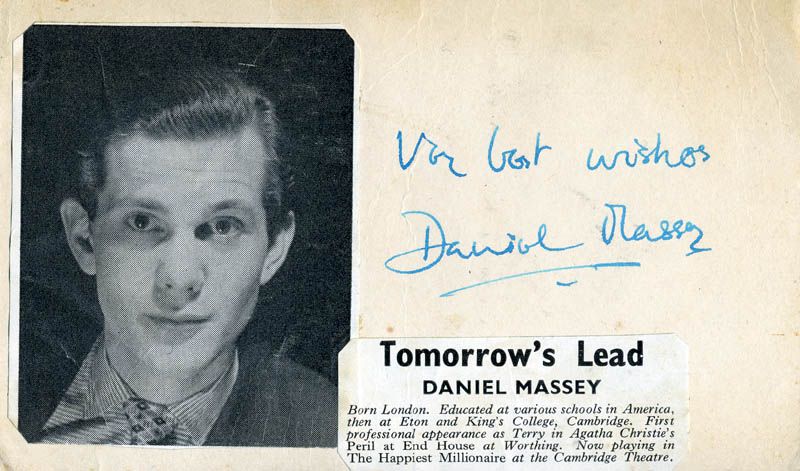 Very best wishes
Daniel Massey
Tomorrow's Lead
DANIEL MASSEY
Born London. Educated at various schools in America,
then at Eton and King's College, Cambridge. First
professional appearance as Terry in Agatha Christie's
Peril at End House at Worthing. Now playing in
The Happiest Millionaire at the Cambridge Theatre.